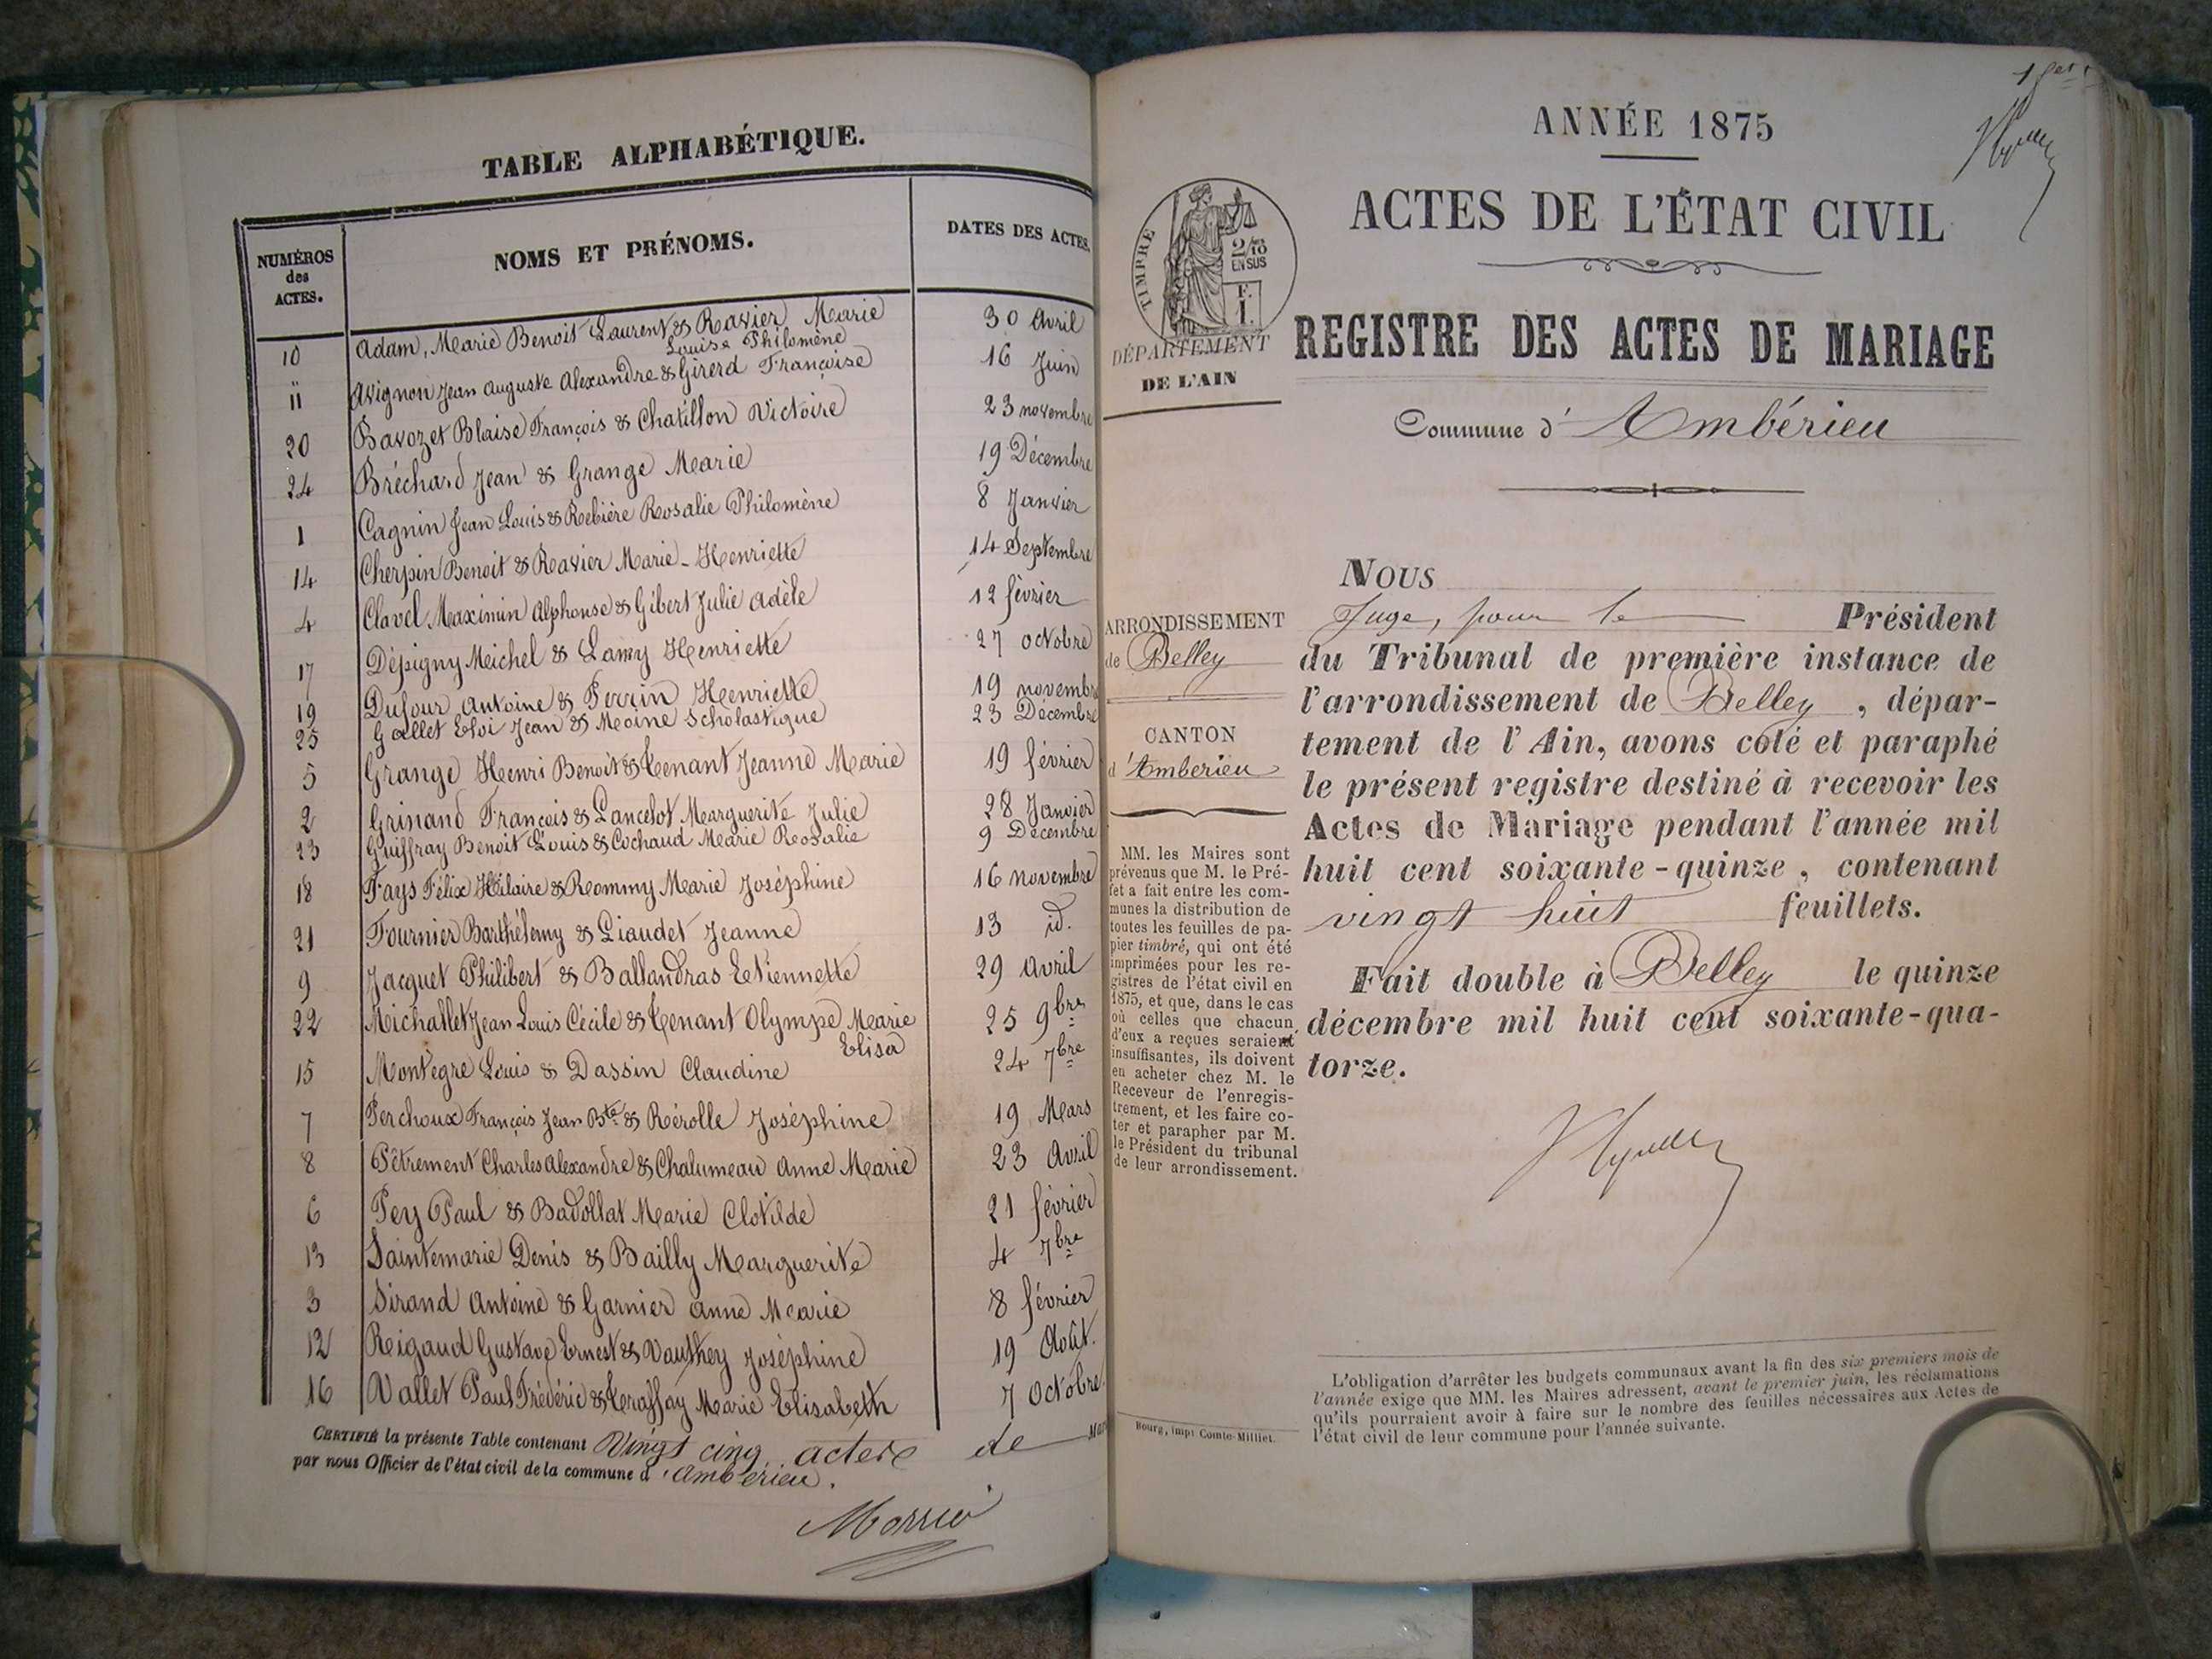 TABLE ALPHABÉTIQUE.
NUMÉROS des ACTES. NOMS ET PRÉNOMS. DATES DES ACTES.
10 Adam, Marie Benoit Laurent & Ravier Marie 30 Avril
Louise Philomène
11 Avignon Jean Auguste Alexandre & Girerd Françoise 16 Juin
20 Bavozet Blaise François & Chatillon Victoire 23 novembre
24 Bréchard Jean & Grange Marie 19 Décembre
1 Cagnin Jean Louis & Rebière Rosalie Philomène 8 Janvier
14 Cherpin Benoit & Ravier Marie-Henriette 14 Septembre
4 Clavel Maximin Alphonse & Gibert Julie Adèle 12 février
17 Dépigny Michel & Lamy Henriette 27 octobre
19 Dufour Antoine & Perrin Henriette 19 novembre
25 Gallet Eloi Jean & Moine Scholastique 23 Décembre
5 Grange Henri Benoit & Tenant Jeanne Marie 19 février
2 Grinand François & Lancelot Marguerite Julie 28 Janvier
23 Guiffray Benoit Louis & Cochaud Marie Rosalie 9 Décembre
18 Fays Félix Hilaire & Rommy Marie Joséphine 16 novembre
21 Fournier Barthélemy & Liaudet Jeanne 13 id.
9 Jacquet Philibert & Ballandras Etiennette 29 Avril
22 Michallet Jean Louis Cécile & Tenant Olympe Marie 25 9bre
Elisa
15 Montègre Louis & Dassin Claudine 24 7bre
7 Perchoux François Jean Bte & Rérolle Joséphine 19 Mars
8 Pêtrement Charles Alexandre & Chalumeau Anne Marie 23 Avril
6 Pey Paul & Badollat Marie Clotilde 21 février
13 Saintemarie Denis & Bailly Marguerite 4 7bre
3 Sirand Antoine & Garnier Anne Marie 8 février
12 Reigaud Gustave Ernest & Vauthey Joséphine 19 Août.
16 Vallet Paul Frédéric & Teraffay Marie Elisabeth 7 Octobre
CERTIFIÉ la présente Table contenant Vingt cinq actes de Mar
par nous Officier de l'état civil de la commune d'Amberieu.
1er
ANNÉE 1875
ACTES DE L'ÉTAT CIVIL
TIMPRE
2/10
EN SUS
F.
1.
DÉPARTEMENT
DE L'AIN
REGISTRE DES ACTES DE MARIAGE
Commune d'Ambérieu
ARRONDISSEMENT
de Belley
CANTON
d'Amberieu
MM. les Maires sont
prévenus que M. le Pré-
fet a fait entre les com-
munes la distribution de
toutes les feuilles de pa-
pier timbré, qui ont été
imprimées pour les re-
gistres de l'état civil en
1875, et que, dans le cas
où celles que chacun
d'eux a reçues seraient
insuffisantes, ils doivent
en acheter chez M. le
Receveur de l'enregis-
trement, et les faire co-
ter et parapher par M.
le Président du tribunal
de leur arrondissement.
Bourg, imp. Comte-Milliet.
NOUS
Juge, pour le Président
du Tribunal de première instance de
l'arrondissement de Belley, dépar-
tement de l'Ain, avons coté et paraphé
le présent registre destiné à recevoir les
Actes de Mariage pendant l'année mil
huit cent soixante-quinze, contenant
vingt huit feuillets.
Fait double à Belley le quinze
décembre mil huit cent soixante-qua-
torze.
L'obligation d'arrêter les budgets communaux avant la fin des six premiers mois de
l'année exige que MM. les Maires adressent, avant le premier juin, les réclamations
qu'ils pourraient avoir à faire sur le nombre des feuilles nécessaires aux Actes de
l'état civil de leur commune pour l'année suivante.